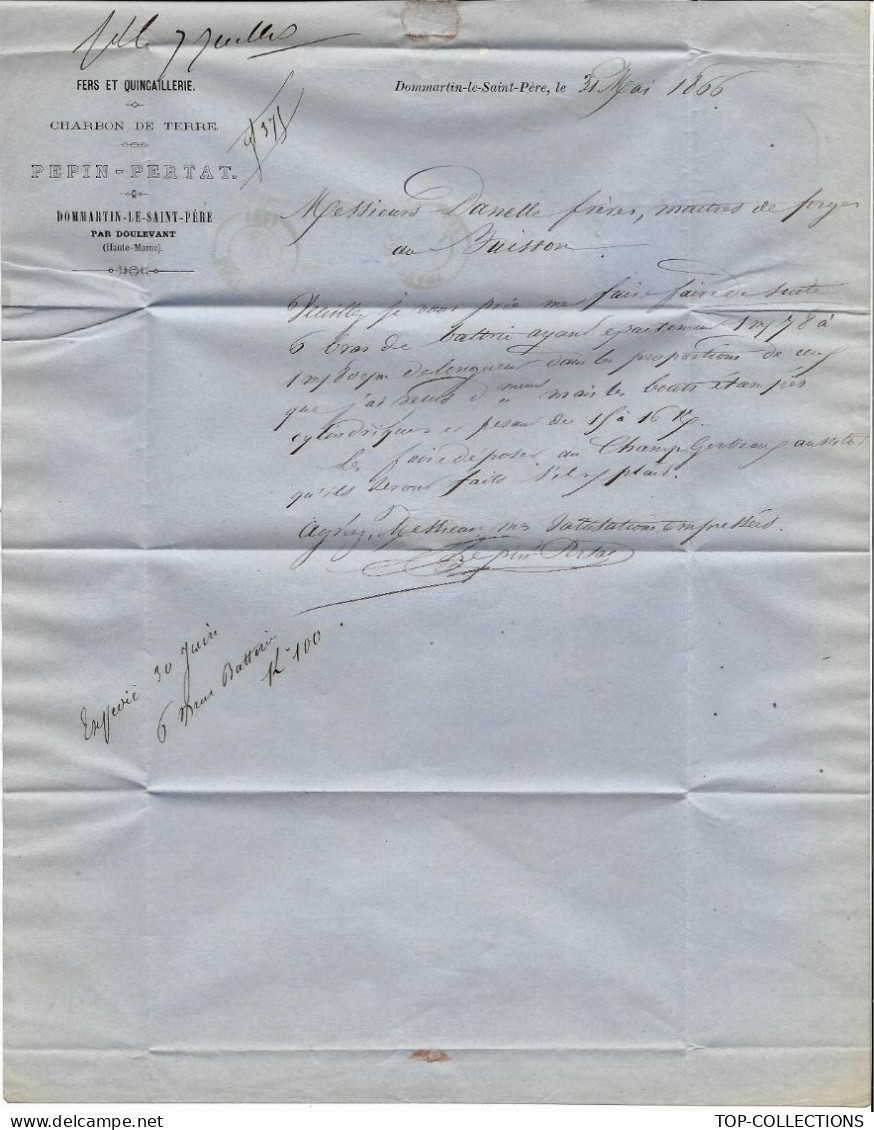 7 Juillet
FERS ET QUINCAILLERIE.
CHARBON DE TERRE.
PEPIN-PERTAT.
DOMMARTIN-LE-SAINT-PÈRE
PAR DOULEVANT
(Haute-Marne).
Dommartin-le-Saint-Père, le 31 Mai 1866
Messieurs Danelle frères, maîtres de forges
au Buisson
Veuillez je vous prie me faire faire de suite
6 bras de batterie ayant 1m78 à
1m80 de longueur dans les proportions de ceux
que j'ai mais les bouts étampés
cylindriques et pesant de 15 à 16 K.
Les faire déposer au Champ Gerbeau aussitôt
qu'ils seront faits s'il v plait.
Agréez, Messieurs, mes salutations empressées.
Pepin Pertat
Expédié 30 Juin
6 Bras Batterie
K 100
TOP-COLLECTIONS